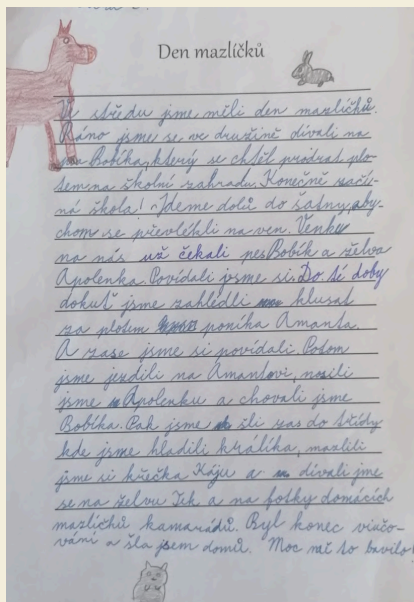 Den mazlíčků
Ve středu jsme měli den mazlíčků.
Ráno jsme se ve družině dívali na
Bobíka, který se chtěl prodrat plo-
tem na školní zahradu. Konečně začí-
ná škola! Jdeme dolů do šatny, aby-
chom se převlékli na ven. Venku
na nás už čekali pes Bobík a želva
Apolenka. Povídali jsme si. Do té doby
dokuť jsme zahlédli klusat
za plotem poníka Amanta.
A zase jsme si povídali. Potom
jsme jezdili na Amantovi, nosili
jsme Apolenku a chovali jsme
Bobíka. Pak jsme šli zas do třídy
kde jsme hladili králíka, mazlili
jsme si křečka Káju a dívali jme
se na želvu Tek a na fotky domácích
mazlíčků kamarádů. Byl konec vyučo-
vání a šla jsem domů. Moc mě to bavilo!